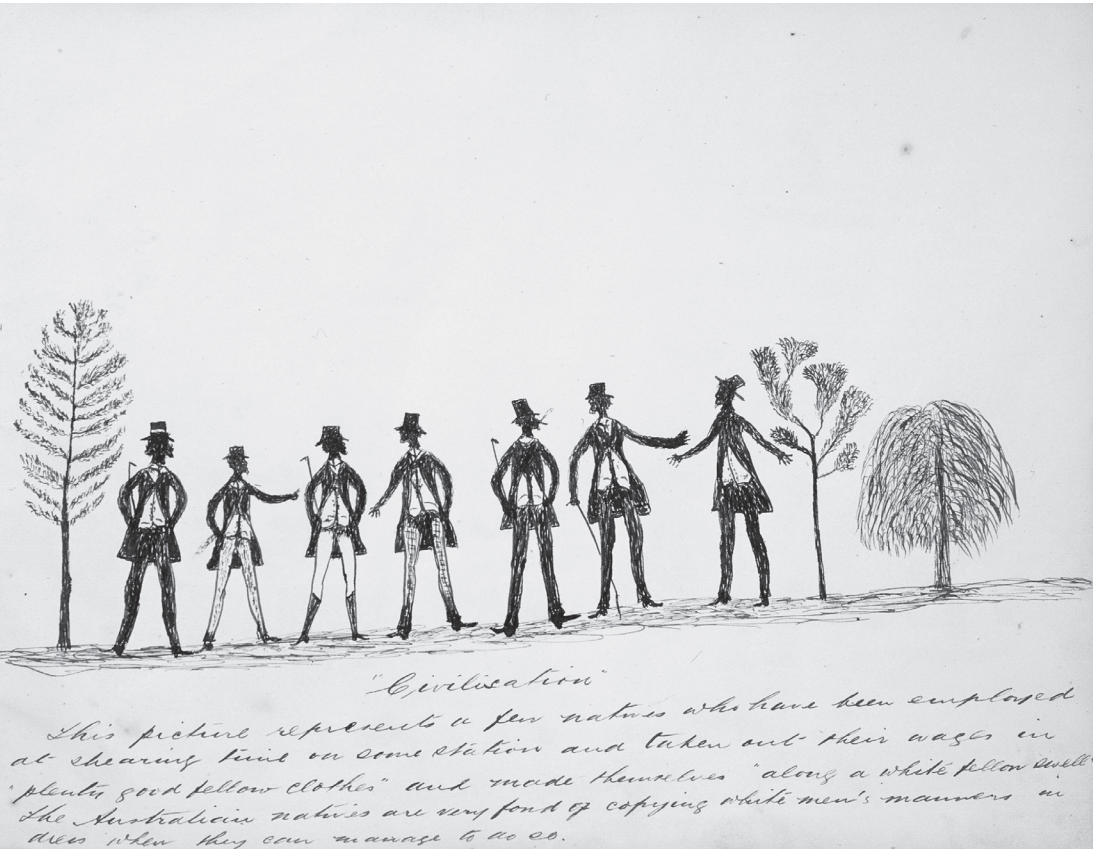 "Civilisation"
This picture represents a few natives who have been employed
at shearing time on some station and taken out their wages in
"plenty good fellow clothes" and made themselves "along a white fellow swell"
The Australian natives are very fond of copying white men's manners in
dress when they can manage to do so.